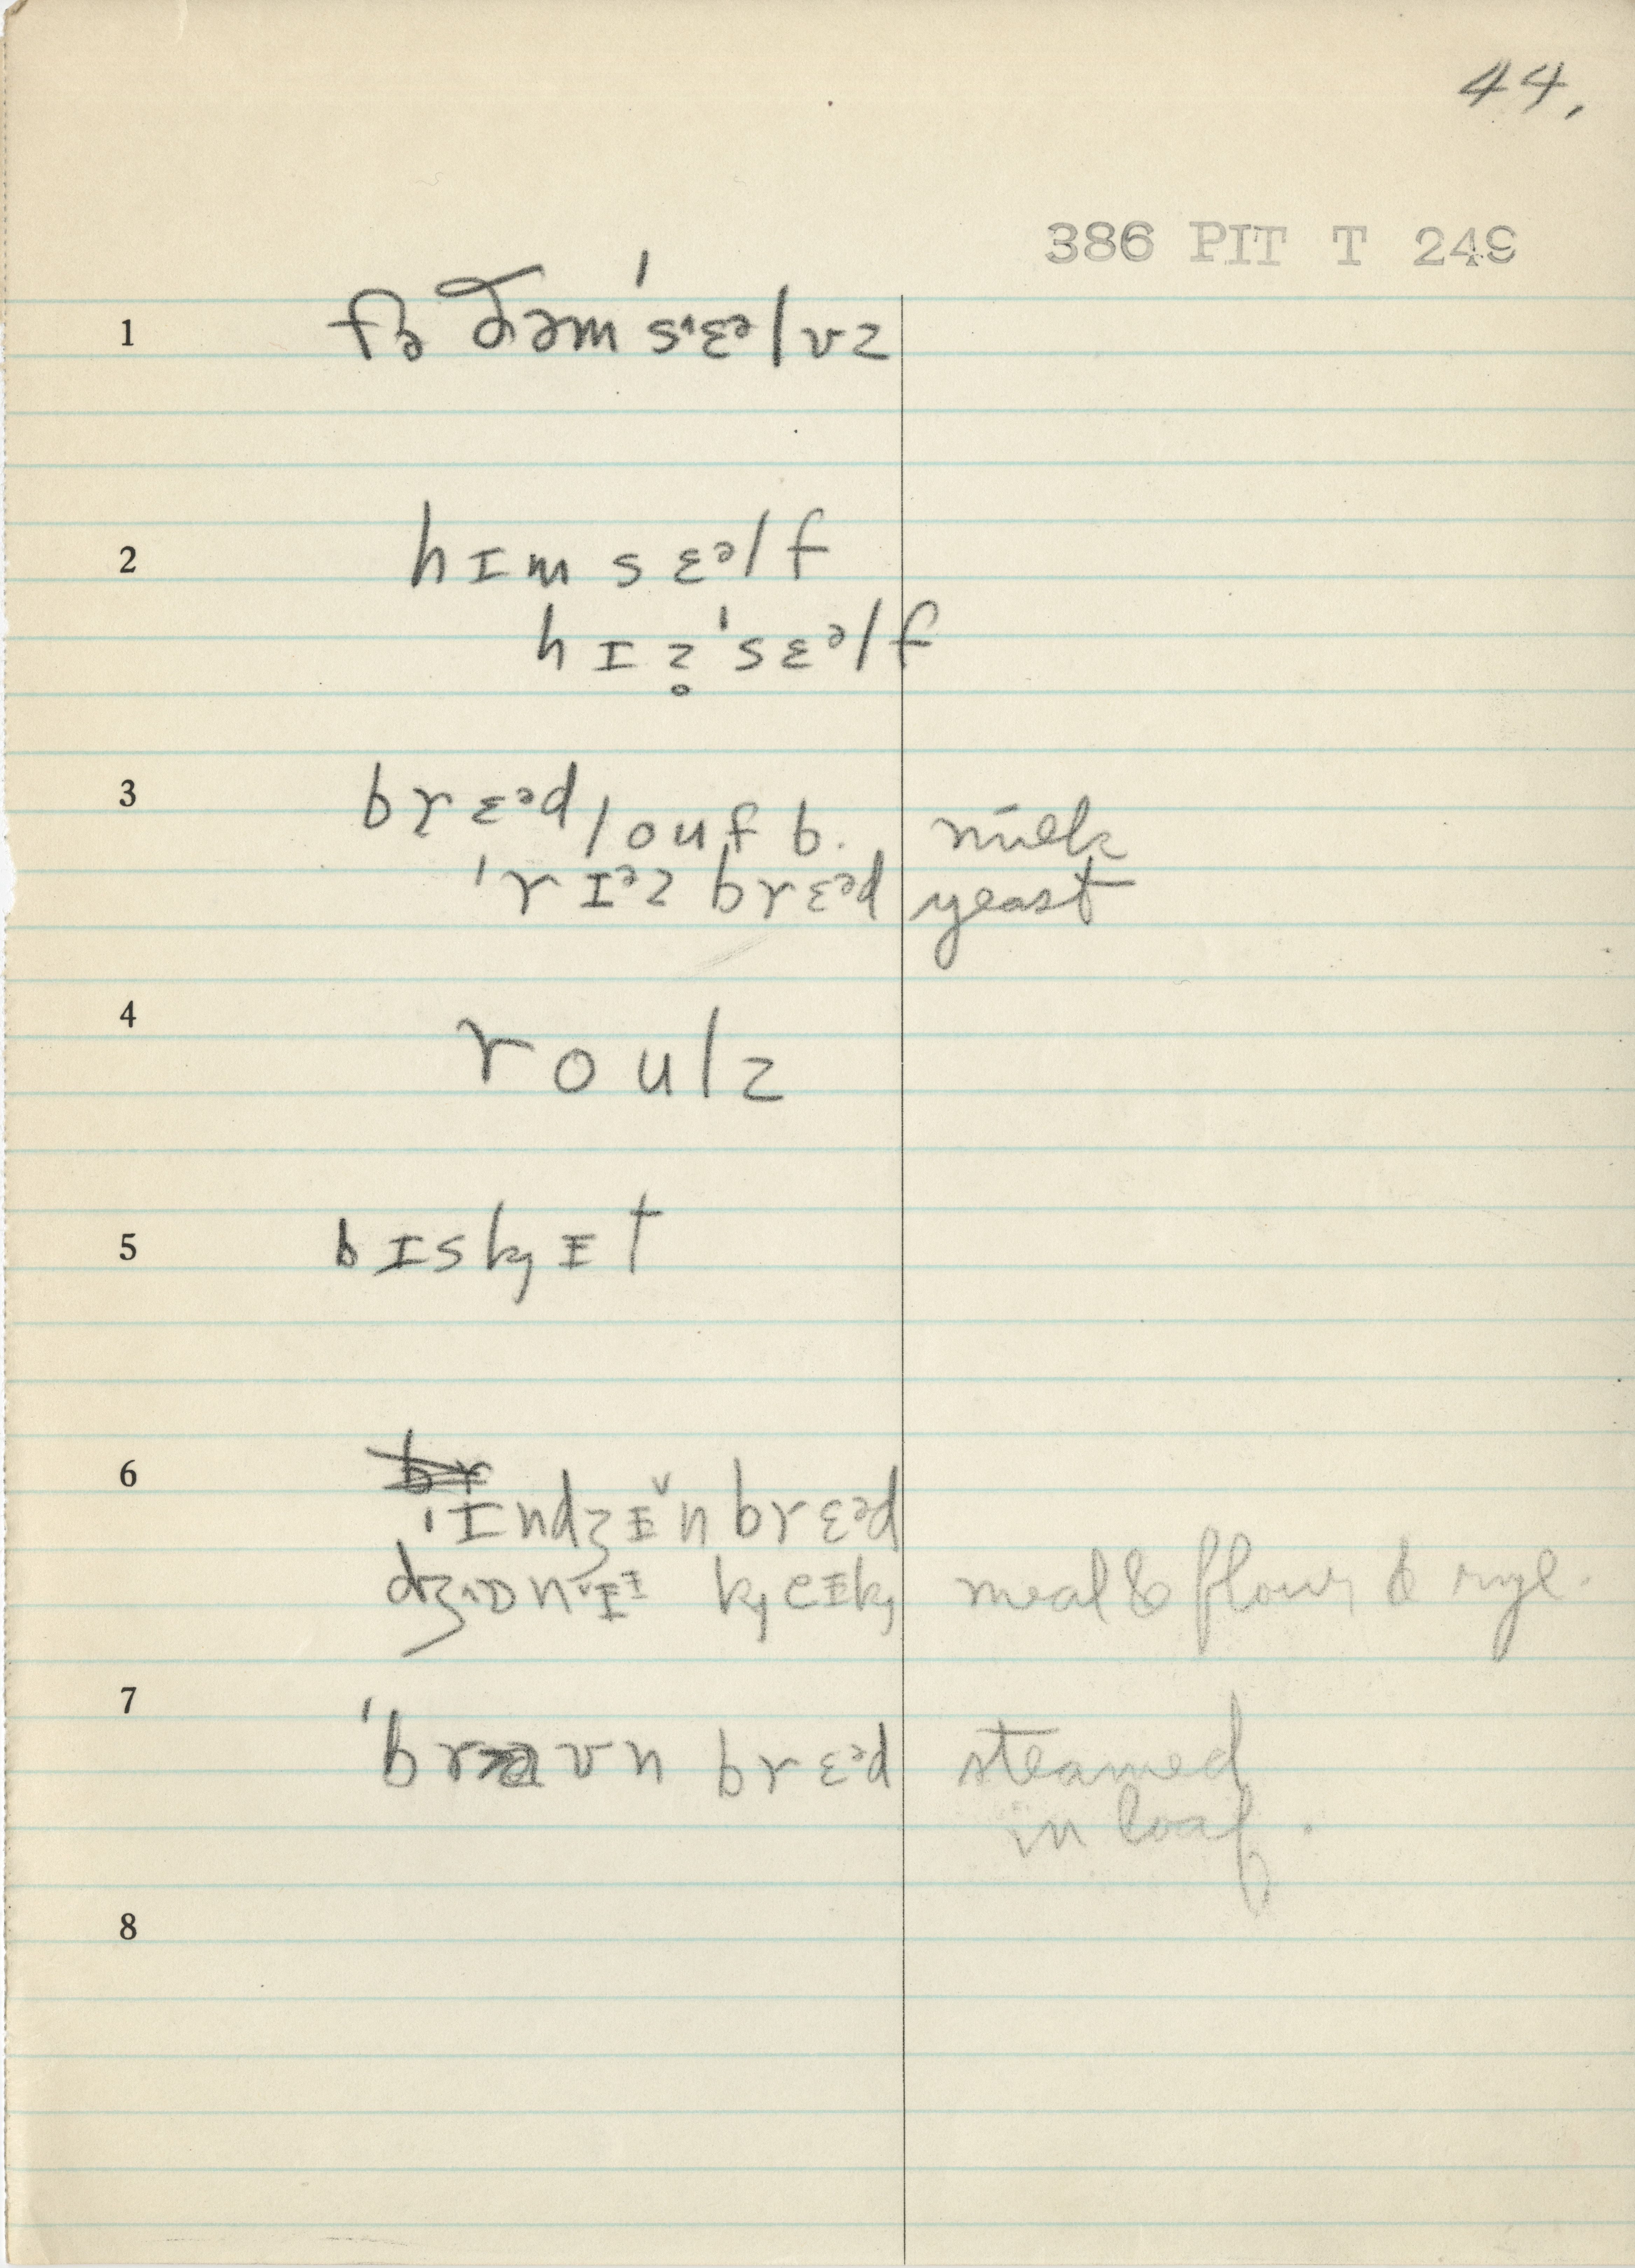 44.
386 PIT T 249
1 fɚ ðəm'sɛᵊlvz
2 hɪmsɛᵊlf
hɪz̥'sɛᵊlf
3 brɛᵊd louf b. milk
'rɪᵊz brɛᵊd yeast
4 roulz
5 bɪskɪ̵t
6 'ɪndʒɪ̵n brɛᵊd
meal & flour & rye.
7 'braʊn brɛᵊd steamed
in loaf.
8